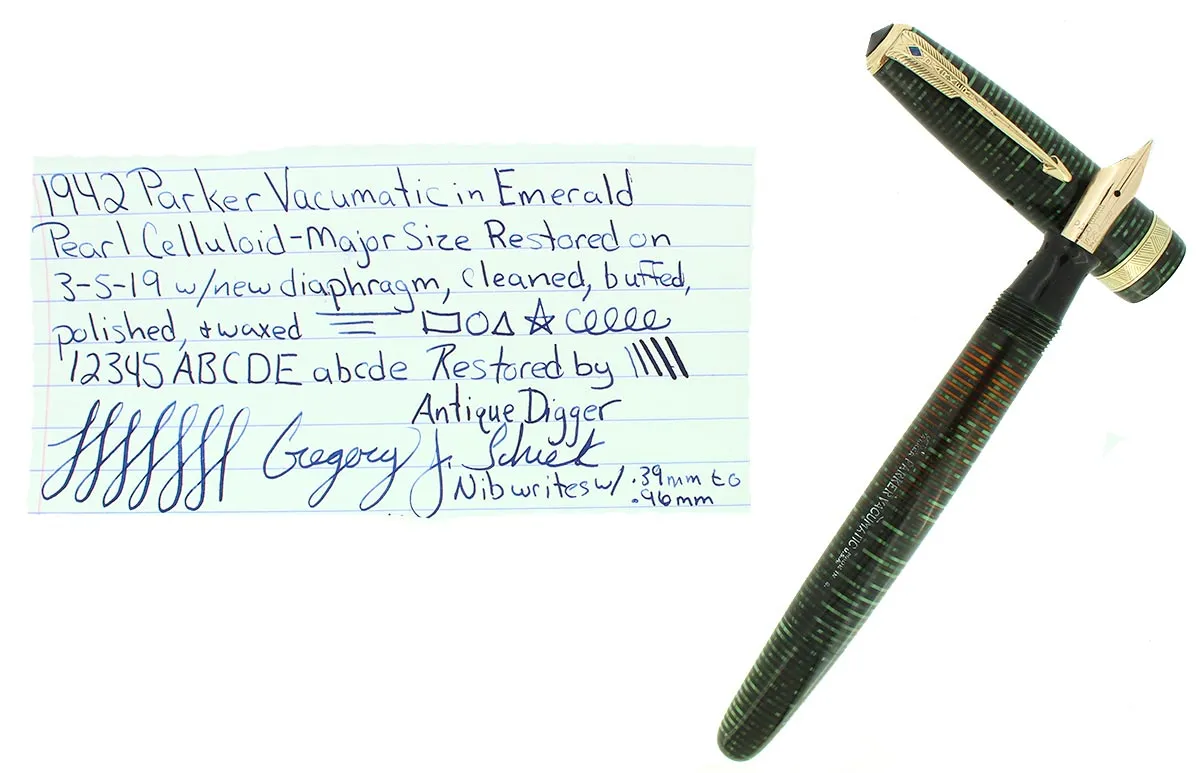 1942 Parker Vacumatic in Emerald
Pearl Celluloid-Major Size Restored on
3-5-19 w/new diaphragm, cleaned, buffed,
polished, + waxed
12345 ABCDE abcde Restored by
Antique Digger
Gregory J.
Nib writes w/ .39mm to
.96mm
PARKER VACUMATIC
MADE IN U.S.A.